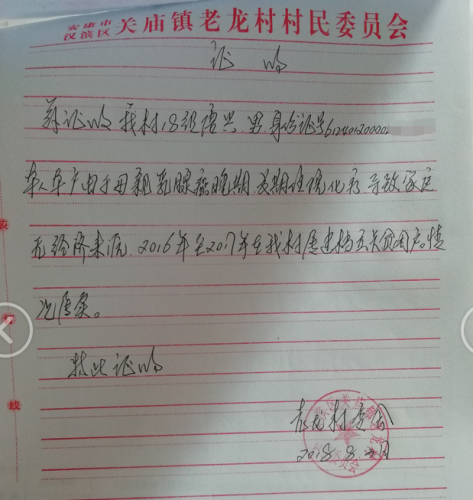 安康市
汉滨区 关庙镇老龙村村民委员会
证明
兹证明我村18组 兴 男 身份证号61240120000
本人本户由于母亲乳腺癌晚期 长期住院化疗 导致家庭
无经济来源 2016年至2017年在我村 建档立卡贫困户。情
况属实。
特此证明
老龙村委会
2018.8. 日
装
线